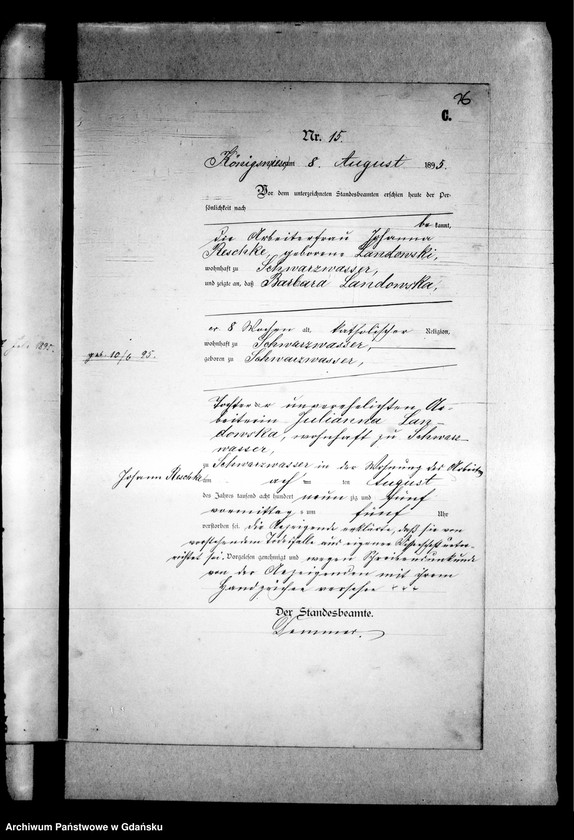 76
C.
Nr. 15.
Königswiese am 8. August 1895.
Vor dem unterzeichneten Standesbeamten erschien heute der Per-
sönlichkeit nach
be kannt,
die Arbeiterfrau Johanna
Reschke, geborene Landowski,
wohnhaft zu Schwarzwasser,
und zeigte an, daß Barbara Landowska,
8 Wochen alt, katholischer Religion,
wohnhaft zu Schwarzwasser,
geb. 10/6 95.
geboren zu Schwarzwasser,
Tochter der unverehelichten Ar-
beiterin Julianna Lan-
dowska, wohnhaft zu Schwarz-
wasser,
zu Schwarzwasser in der Wohnung des Arbeiters
Johann Reschke am ach ten August
des Jahres tausend acht hundert neun zig und fünf
vormittags um fünf Uhr
verstorben sei. Die Anzeigende erklärte, daß sie von
vorstehendem Todesfalle aus eigener Wissenschaft unter-
richtet sei. Vorgelesen genehmigt und wegen Schreibensunkunde
von der Anzeigenden mit ihrem
Handzeichen versehen + + +
Der Standesbeamte.
Archiwum Państwowe w Gdańsku